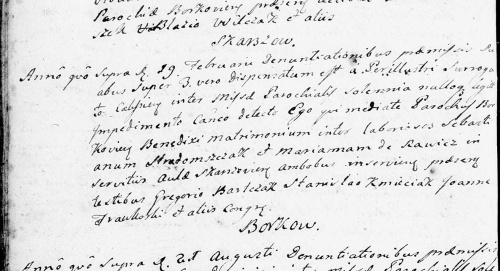 Parochiæ Borkoviens præsent
szek Blasio Wilczak et aliis
Skarżow.
Annô quô Supra d. 19 Februarii Denuntiationibus præmissis Du
abus Super 3. vero dispensatum est a Perillustri Surroga
to inter Missa Parochialis Solemnia nulloq legit
Impedimento Canco detecto Ego qui mediate Parochus Bor
koviens Benedixi matrimonium inter laboriosos Sebasti
anum Stradomszczak et Mariamam de Rawicz in
servitiis Aulæ Skarżoviens ambobus inserviens præsent
testibus Gregorio Barlczak Stanislao Kmieciak Joanne
et aliis Congreg.
Borkow.
Annô quô Supra d. 21 Augusti Denuntiationibus præmissis
Missa Parochiali